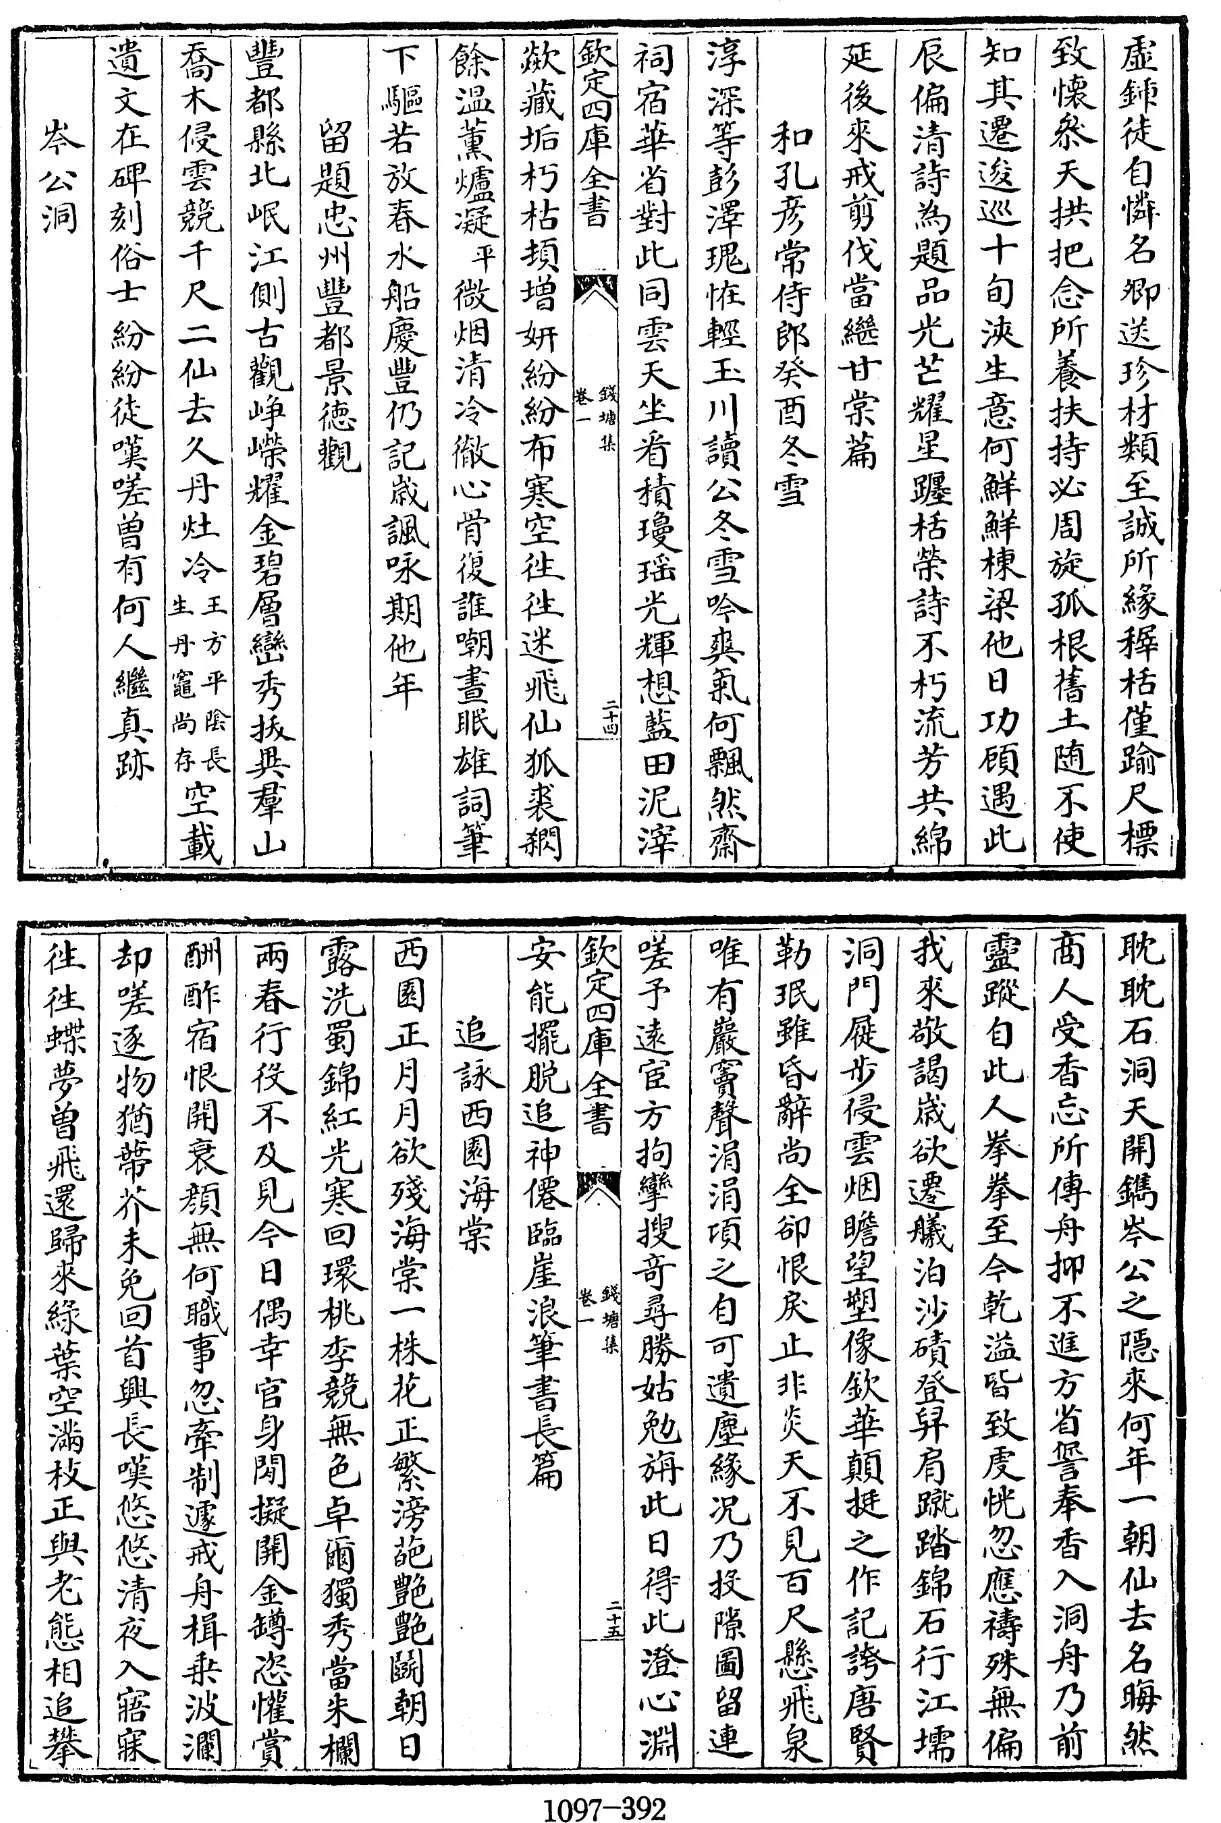 虛鈽徒自憐名卿送珍材類至誠所緣稺栝僅踰尺標
致懷叅天拱把念所養扶持必周旋孤根舊土随不使
知其遷逡巡十旬浹生意何鮮鮮棟梁他日功顧遇此
辰偏清詩為題品光芒耀星躔栝榮詩不朽流芳共綿
延後來戒剪伐當繼甘棠篇
和孔彦常侍郎癸酉冬雪
淳深等彭澤瑰恠輕玉川讀公冬雪吟爽氣何飄然齋
祠宿華省對此同雲天坐看積瓊瑶光輝想藍田泥滓
欽定四庫全書
錢塘集
卷一
二十四
歘藏垢朽枯頓增妍紛紛布寒空徃徃迷飛仙狐裘閷
餘温薰爐凝平微烟清冷徹心骨復誰嘲晝眠雄詞筆
下驅若放春水船慶豐仍記歲諷咏期他年
留題忠州豐都景徳觀
豐都縣北岷江側古觀峥嶸耀金碧層巒秀拔與羣山
喬木侵雲競千尺二仙去久丹灶冷王方平陰長生丹竈尚存空載
遺文在碑刻俗士紛紛徒嘆嗟曽有何人繼真跡
岑公洞
耽耽石洞天開鐫岑公之隱來何年一朝仙去名晦然
商人受香忘所傳舟抑不進方省諐奉香入洞舟乃前
靈蹤自此人拳拳至今乾溢皆致䖍恍忽應禱殊無偏
我來敬謁歲欲遷艤泊沙磧登舁肩蹴踏錦石行江壖
洞門屣步侵雲烟瞻望塑像欽華顛挺之作記誇唐賢
勒珉雖昏辭尚全卻恨戾止非炎天不見百尺懸飛泉
唯有巖竇聲涓涓項之自可遺塵緣况乃投隙圖留連
嗟予遠宦方拘攣搜竒尋勝姑勉旃此日得此澄心淵
欽定四庫全書
錢塘集
卷一
二十五
安能擺脱追神僊臨崖浪筆書長篇
追詠西園海棠
西園正月月欲殘海棠一株花正繁滂葩艷艷鬭朝日
露洗蜀錦紅光寒回環桃李競無色卓爾獨秀當朱欄
兩春行役不及見今日偶幸官身閒擬開金罇恣懽賞
酬酢宿恨開衰顔無何職事忽牽制遽戒舟楫乗波瀾
却嗟逐物猶蔕芥未免回首興長嘆悠悠清夜入寤寐
徃徃蝶夢曽飛還歸來緑葉空滿枝正與老態相追攀
1097-392